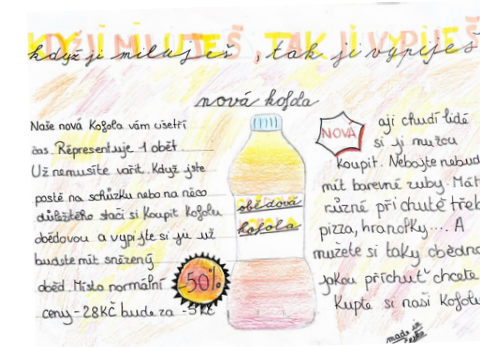 KDYŽ JI MILUJEŠ, TAK JI VYPIJEŠ
když ji miluješ, tak ji vypiješ
nová kofola
Naše nová Kofola vám ušetří
čas. Répresentuje 1 obět.
Už nemusíte vařit. Když jste
pozvě na schůzku nebo na něco
důležitého stačí si Koupit Kofolu
obědovou a vypijte si ju už
budete mít snězený
oběd. Místo normální
ceny - 28KČ bude za
-50%
obědová
kofola
NOVÁ
aji chudí lidé
si ji mužou
koupit. Nebojte nebud
mít barevné zuby. Mát
různé příchutě třeb
pizza, hranolky.... A
mužete si taky obědno
jakou příchuť chcete
Kupte si naší Kofolu
made in